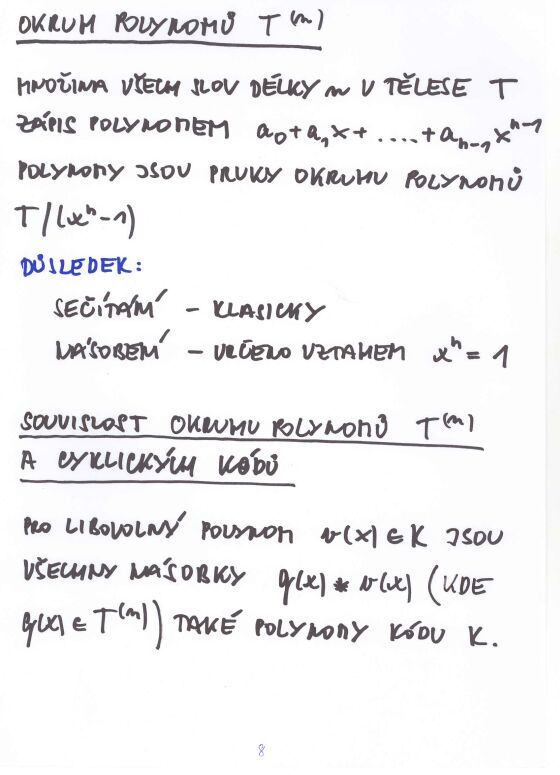 OKRUH POLYNOMŮ T⁽ⁿ⁾
MNOŽINA VŠECH SLOV DÉLKY n V TĚLESE T
ZÁPIS POLYNOMEM a₀+a₁x+....+aₙ₋₁xⁿ⁻¹
POLYNOMY JSOU PRVKY OKRUHU POLYNOMŮ
T/(xⁿ-1)
DŮSLEDEK:
SEČÍTÁNÍ - KLASICKY
NÁSOBENÍ - URČENO VZTAHEM xⁿ = 1
SOUVISLOST OKRUHU POLYNOMŮ T⁽ⁿ⁾
A CYKLICKÝCH KÓDŮ
PRO LIBOVOLNÝ POLYNOM v(x) ∈ K JSOU
VŠECHNY NÁSOBKY q(x) * v(x) (KDE
q(x) ∈ T⁽ⁿ⁾) TAKÉ POLYNOMY KÓDU K.
8